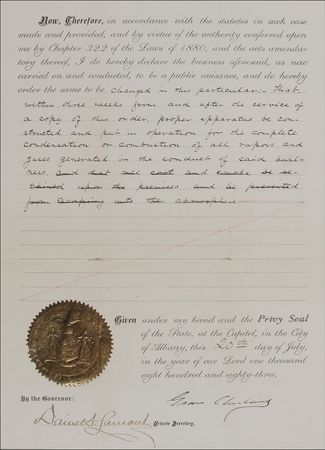 Now, Therefore, in accordance with the statutes in such case
made and provided, and by virtue of the authority conferred upon
me by Chapter 322 of the Laws of 1880, and the acts amenda-
tory thereof, I do hereby declare the business aforesaid, as now
carried on and conducted, to be a public nuisance, and do hereby
order the same to be changed in this particular:- That
within three weeks from and after the service of
a copy of this order, proper apparatus be con-
structed and put in operation for the complete
condensation or combustion of all vapors and
gases generated in the conduct of said busi-
ness and that all soot and smoke be re-
tained upon the premises and be prevented
from escaping into the atmosphere
Given under my hand and the Privy Seal
of the State, at the Capitol, in the City
of Albany, this 20th day of July,
in the year of our Lord one thousand
eight hundred and eighty-three.
Grover Cleveland
By the Governor:
Daniel S. Lamont
Private Secretary.